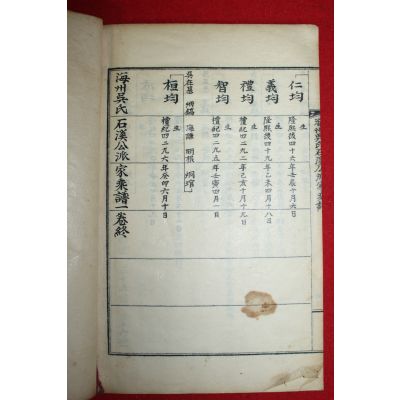 仁均
生
隆熙後四十六年壬辰十月六日
義均
生
隆熙後四十九年乙未四月十八日
禮均
生
檀紀四二九二年己亥十月十九日
智均
生
檀紀四二九五年壬寅四月一日
吳在基
桓均
生
檀紀四二九六年癸卯六月十日
海州吳氏石溪公派家乘譜一卷終